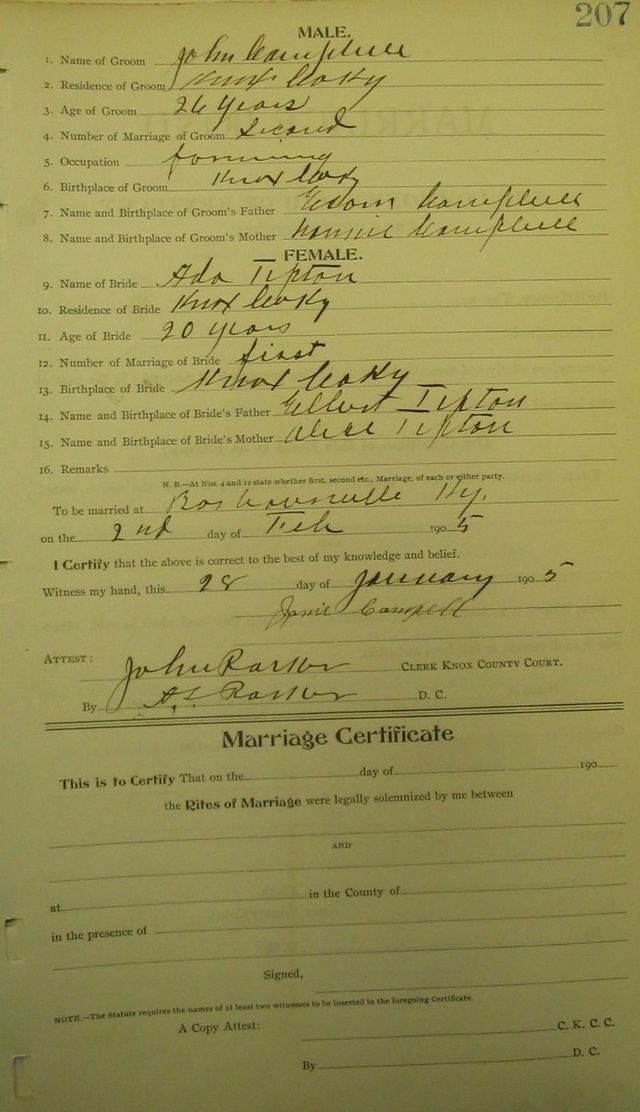 207
MALE.
1. Name of Groom John Campbell
2. Residence of Groom Knox Co Ky
3. Age of Groom 26 years
4. Number of Marriage of Groom Second
5. Occupation farming
6. Birthplace of Groom Knox Co Ky
7. Name and Birthplace of Groom's Father Campbell
8. Name and Birthplace of Groom's Mother Campbell
FEMALE.
9. Name of Bride Ada Tipton
10. Residence of Bride Knox Co Ky
11. Age of Bride 20 years
12. Number of Marriage of Bride first
13. Birthplace of Bride Knox Co Ky
14. Name and Birthplace of Bride's Father Elbert Tipton
15. Name and Birthplace of Bride's Mother Alice Tipton
16. Remarks
N. B.—At Nos. 4 and 12 state whether first, second etc., Marriage, of each or either party.
To be married at Barbourville Ky.
on the 2nd day of Feb 1905
I Certify that the above is correct to the best of my knowledge and belief.
Witness my hand, this 28 day of January 1905
ATTEST: John Parker CLERK KNOX COUNTY COURT.
By Parker D. C.
Marriage Certificate
This is to Certify That on the day of 190
the Rites of Marriage were legally solemnized by me between
AND
at in the County of
in the presence of
Signed,
NOTE.—The Statute requires the names of at least two witnesses to be inserted in the foregoing Certificate.
A Copy Attest: C. K. C. C.
By D. C.